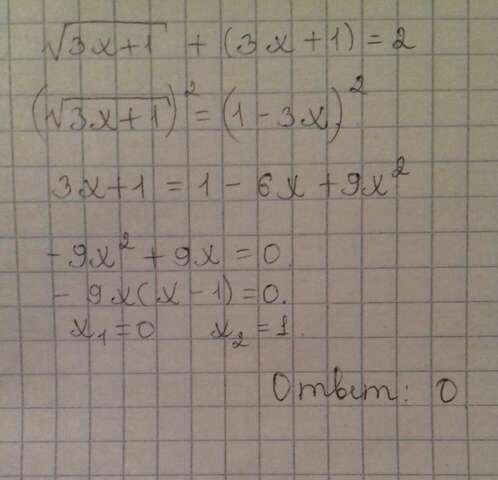 √3x+1 + (3x+1) = 2
(√3x+1)² = (1-3x)²
3x+1 = 1 - 6x + 9x²
-9x² + 9x = 0.
- 9x(x-1)=0.
x₁=0 x₂=1.
Ответ: 0